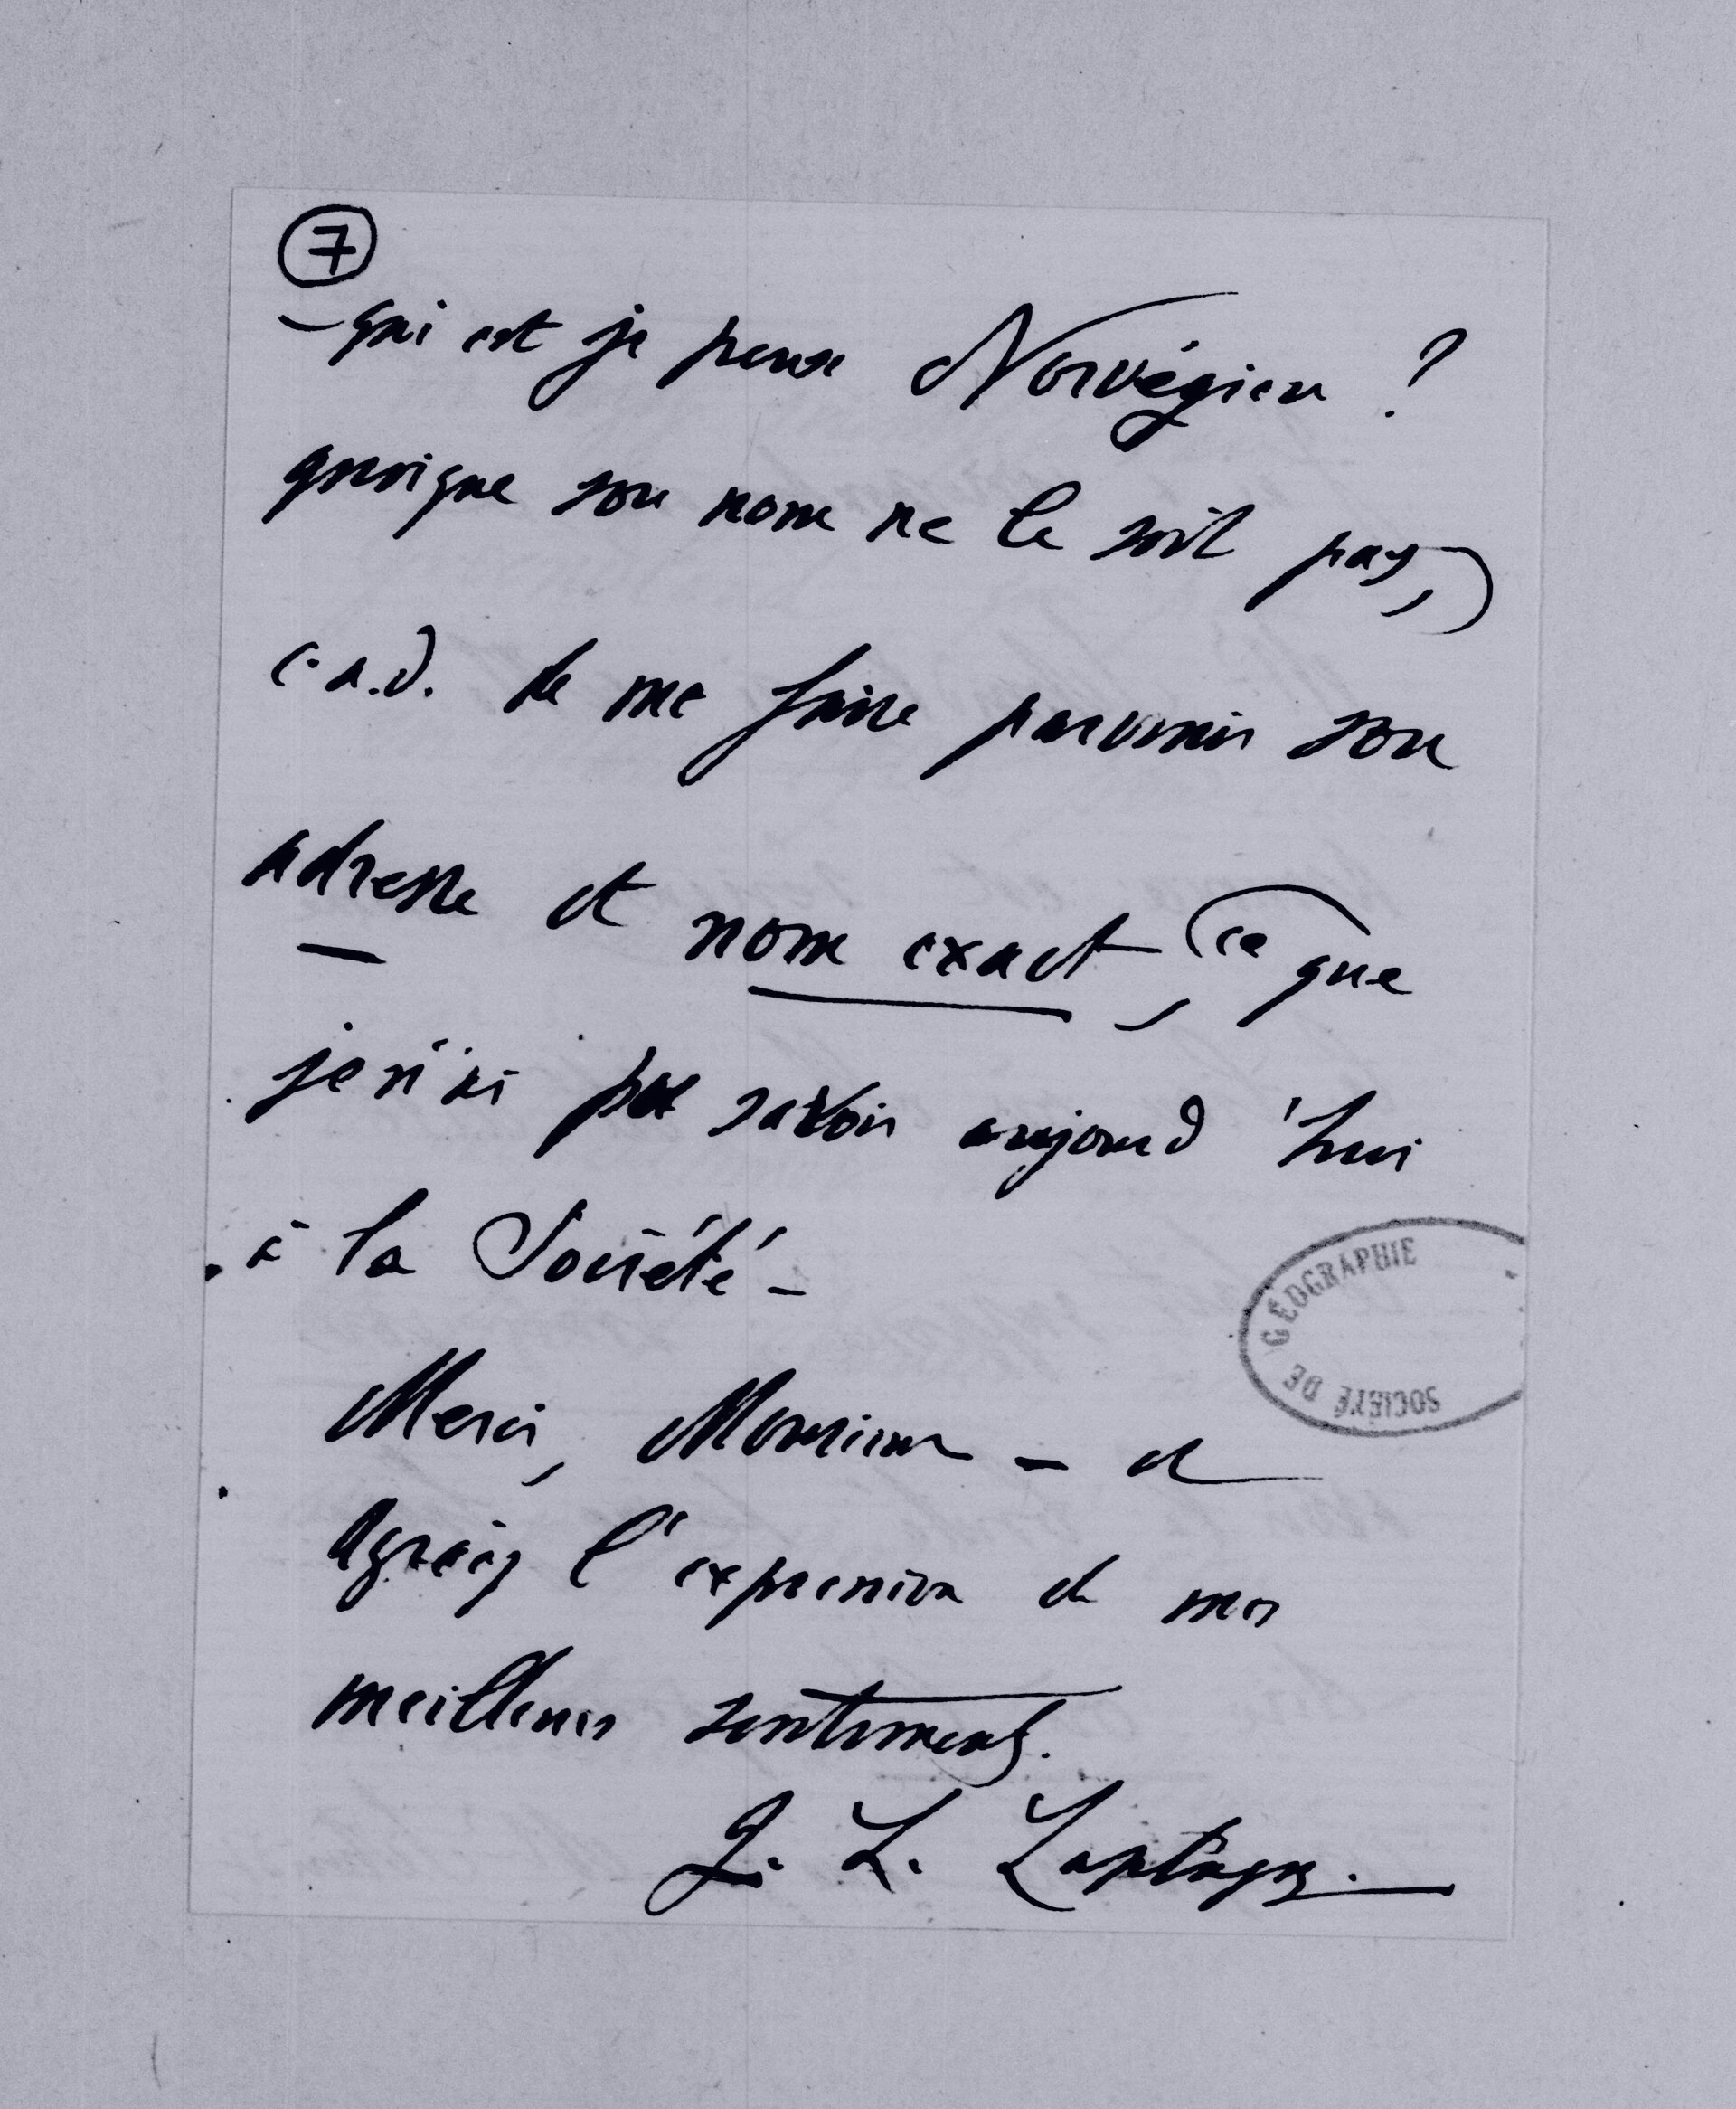 7
— qui est je pense Norvégien ?
quoique son nom ne le soit pas,)
c.a.d. de me faire parvenir son
adresse et nom exact, (ce que
je n'ai pu savoir aujourd'hui
à la Société —
SOCIÉTÉ DE GÉOGRAPHIE
Merci, Monsieur — et
agréez l'expression de mes
meilleurs sentiments.
L.